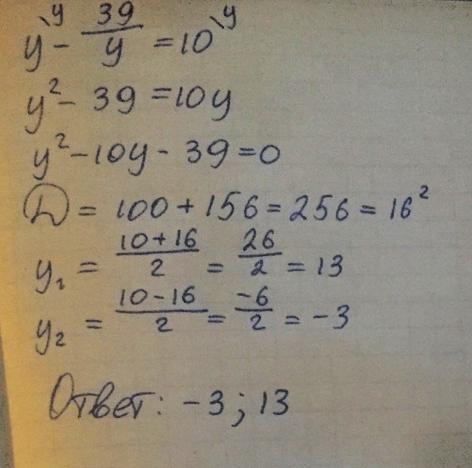 y^{\y} - 39/y = 10^{\y}
y² - 39 = 10y
y² - 10y - 39 = 0
D = 100 + 156 = 256 = 16²
y₁ = (10+16)/2 = 26/2 = 13
y₂ = (10-16)/2 = -6/2 = -3
Ответ: -3; 13